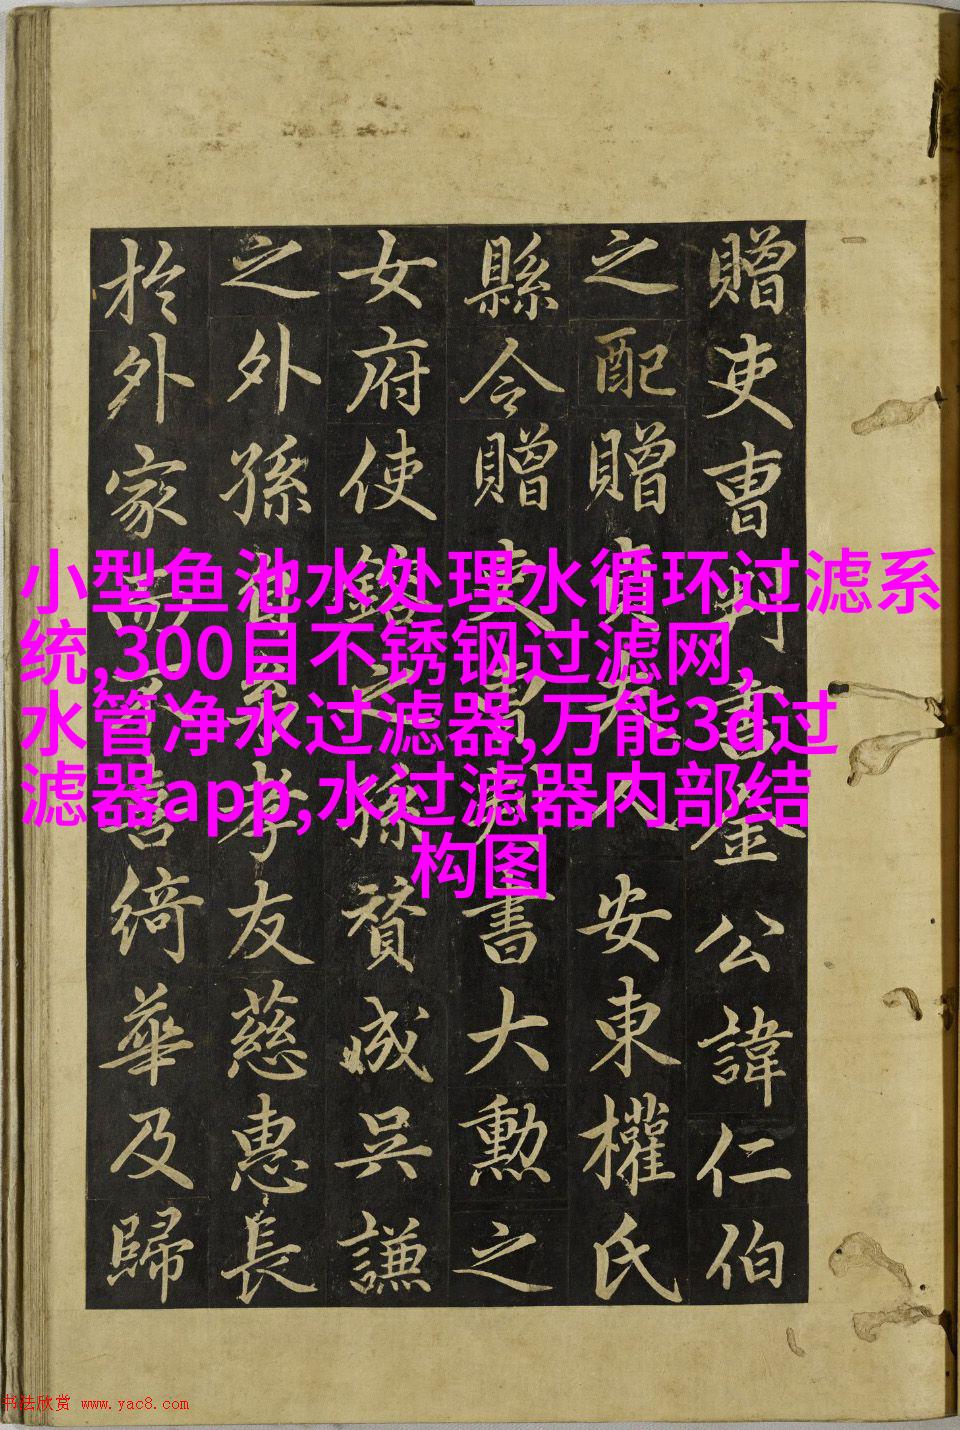 贈吏曹判書金公諱仁伯
之配贈貞夫人安東權氏
縣令贈吏曹判書大勳之
女府使之孫賛成吳謙
之外孫也孝友慈惠長
於外家不喜綺華及歸
小型鱼池水处理水循环过滤系
统,300目不锈钢过滤网,
水管净水过滤器,万能3d过
滤器app,水过滤器内部结
构图
书法欣赏 www.yac8.com